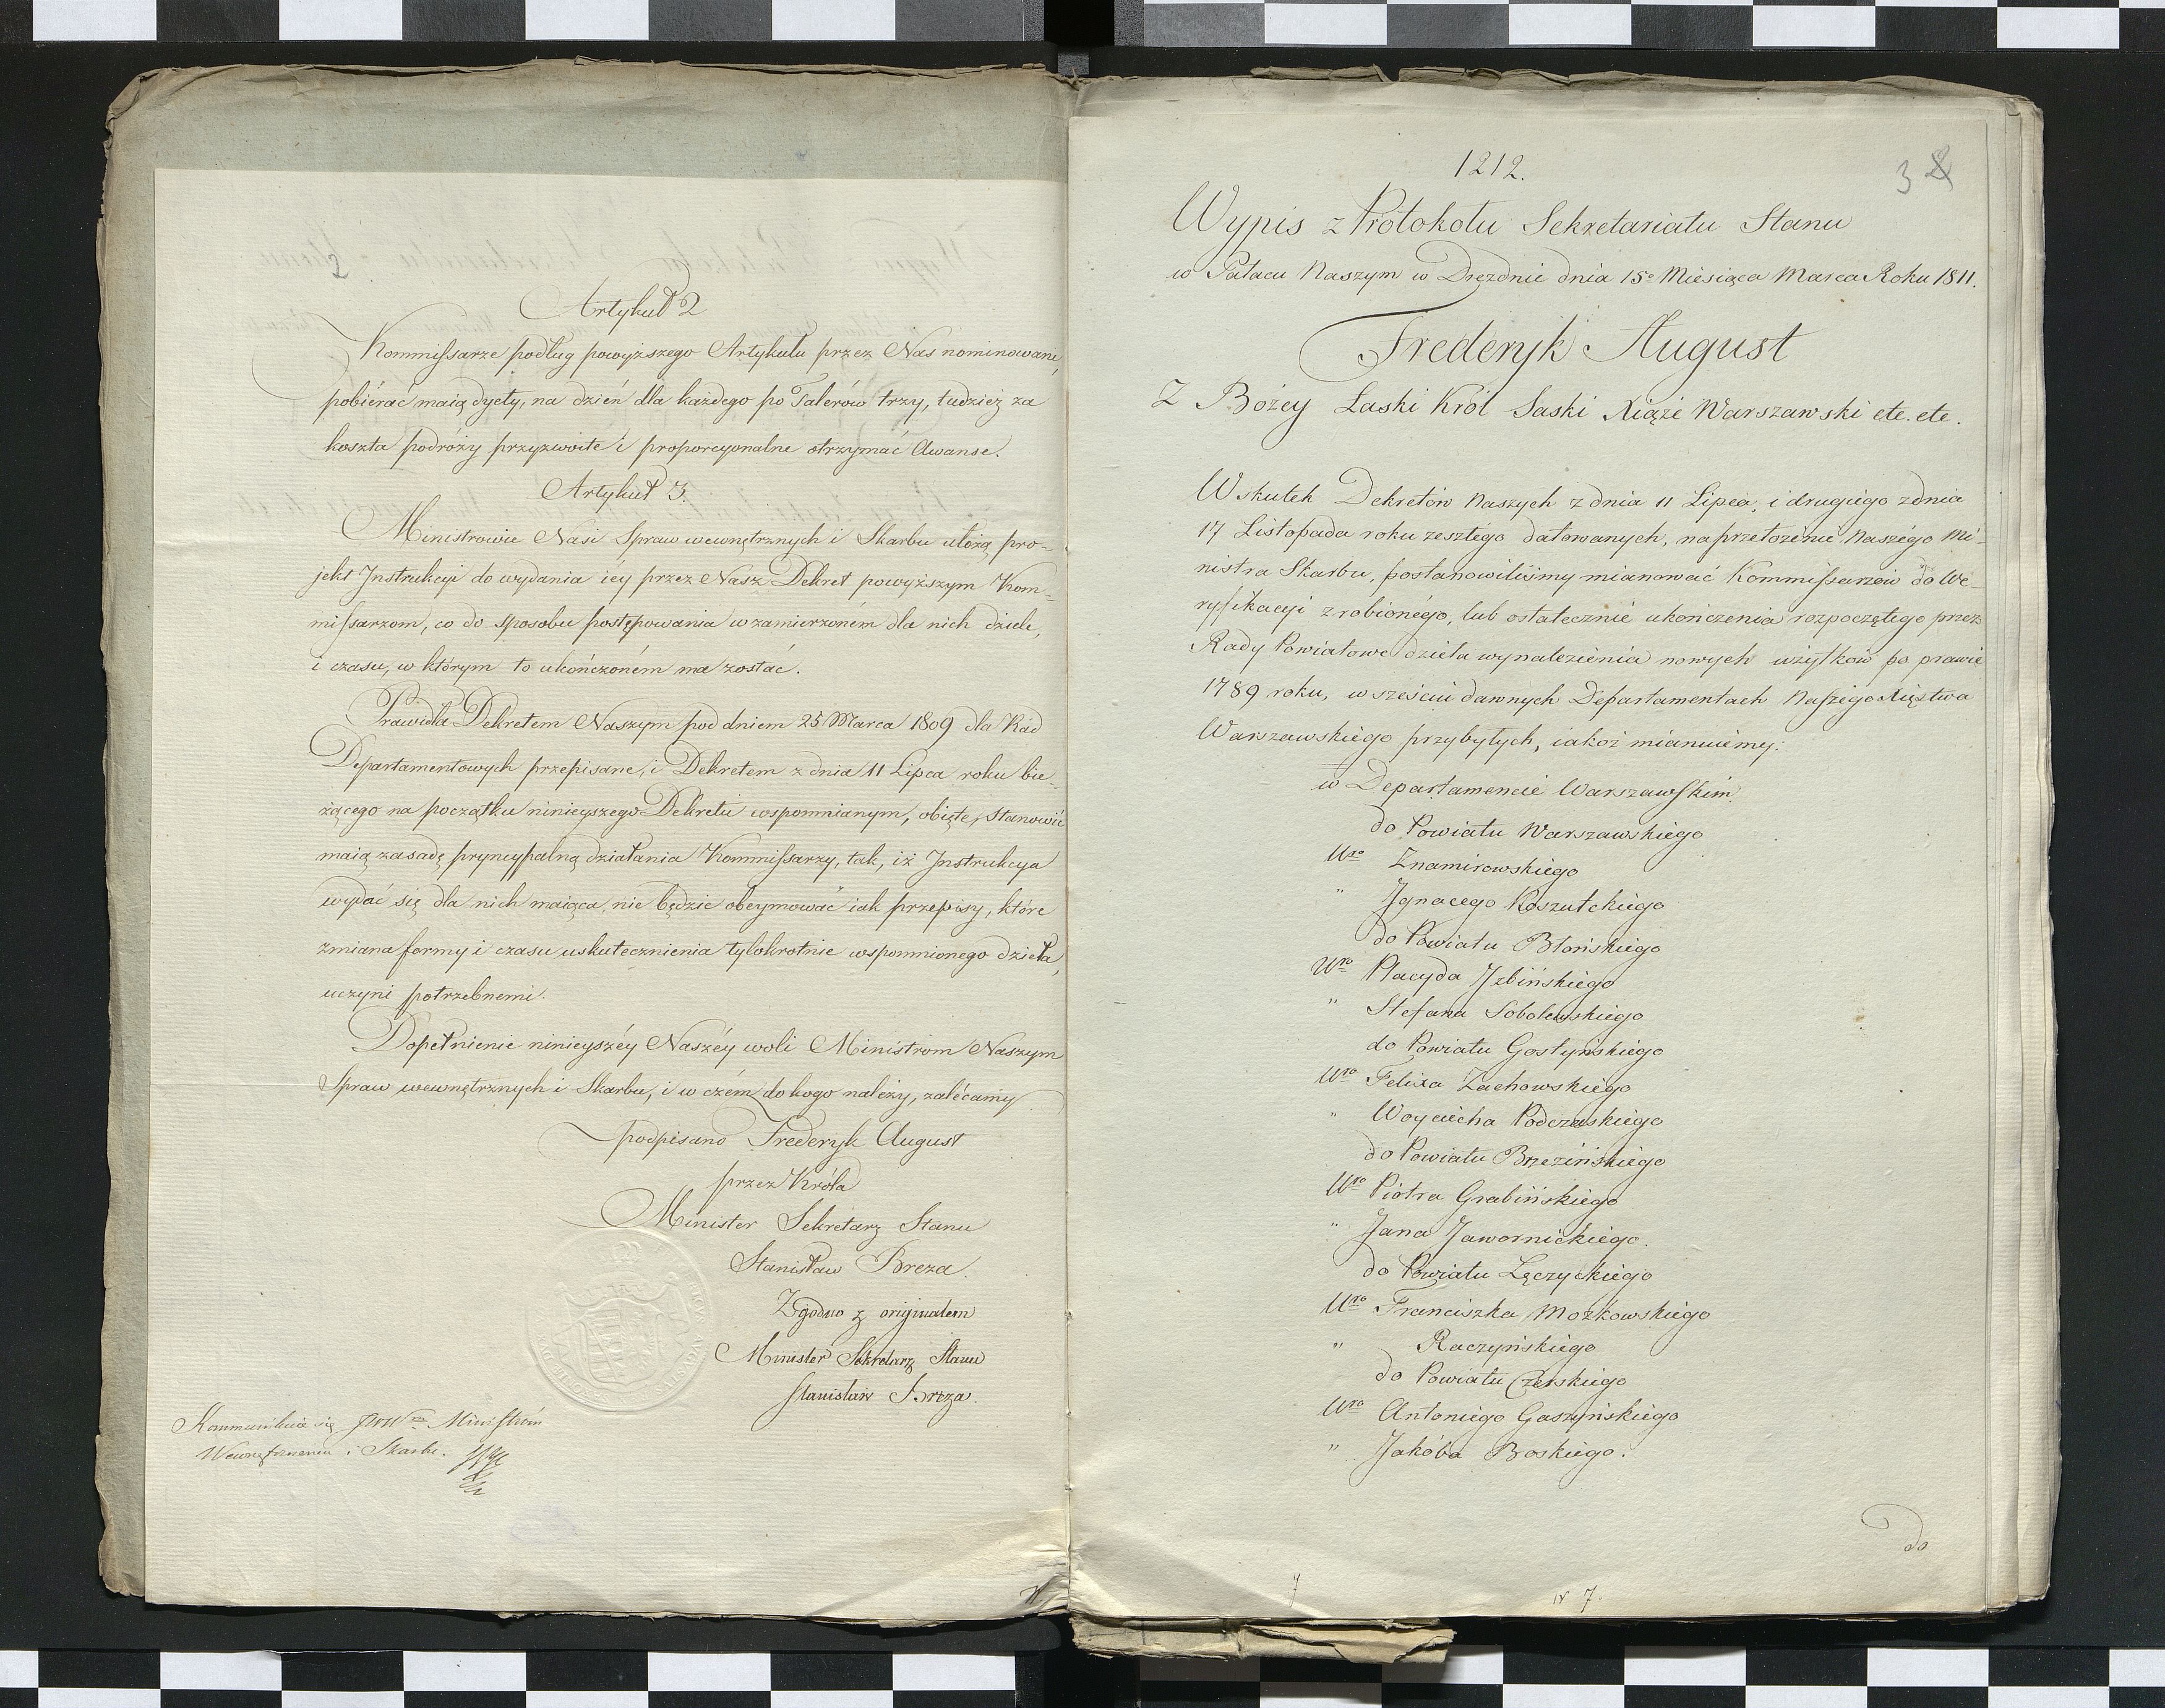 2
Artykuł 2
Kommissarze podług powyższego Artykułu przez Nas nominowani,
pobiérać maią dyety, na dzień dla każdego po Talerów trzy, tudzież za
koszta podróży przyzwoite i proporcyonalne otrzymać Awanse.
Artykuł 3.
Ministrowie Nasi Spraw wewnętrznych i Skarbu ułożą pro-
jekt Instrukcyi do wydania iéy przez Nasz Dekret powyższym Kom-
missarzom, co do sposobu postępowania w zamierzoném dla nich dziele,
i czasu, w którym to ukończoném ma zostać.
Prawidła Dekretem Naszym pod dniem 25 Marca 1809 dla Rad
Departamentowych przepisane, i Dekretem z dnia 11 Lipca roku bie-
żącego na początku ninieyszego Dekretu wspomnianym, obięte, stanowić
maią zasadę pryncypalną działania Kommissarzy, tak, iż Instrukcya
wydać się dla nich maiąca, nie będzie obeymować iak przepisy, które
zmiana formy i czasu uskutecznienia tylokrotnie wspomnionego dzieła,
uczyni potrzebnemi.
Dopełnienie ninieyszéy Naszéy woli Ministrom Naszym
Spraw wewnętrznych i Skarbu, i w czém do kogo należy, zalécamy
podpisano Frederyk August
przez Króla
Minister Sekretarz Stanu
Stanisław Breza.
Zgodno z originałem
Minister Sekretarz Stanu
Stanisław Breza.
Kommunikuie się Ministrom
i Skarbu.
1212.
3
Wypis z Protokołu Sekretariatu Stanu
w Pałacu Naszym w Dreznie dnia 15o Miesiąca Marca Roku 1811.
Frederyk August
Z Bożey Łaski Król Saski Xiąże Warszawski etc. etc.
Wskutek Dekretów Naszych z dnia 11 Lipca, i drugiego z dnia
17 Listopada roku zeszłego datowanych, na przełożenie Naszégo Mi-
nistra Skarbu, postanowiliśmy mianować Kommissarzów do We-
ryfikacyi zrobionégo, lub ostatecznie ukończenia rozpoczętego przez
Rady Powiatowe dzieła wynalezienia nowych użytków po prawie
1789 roku, w sześciu dawnych Departamentach Naszégo Xięstwa
Warszawskiégo przybyłych, iakoż mianuiemy:
w Departamencie Warszawskim.
do Powiatu Warszawskiego
Uro Znamirowskiego
" Jgnacego Koszutskiego
do Powiatu Błońskiego
Uro Placyda Jzbińskiego
" Stefana Sobolewskiego
do Powiatu Gostyńskiego
Uro Felixa Zachowskiego
" Woyciecha Podczaskiego
do Powiatu Brzezińskiego
Uro Piotra Grabińskiego
" Jana Jawornickiego.
do Powiatu Łęczyckiego
Uro Franciszka Mozkowskiego
" Raczyńskiego
do Powiatu Czerskiego
Uro Antoniego Gaszyńskiego
" Jakóba Boskiego.
do
7